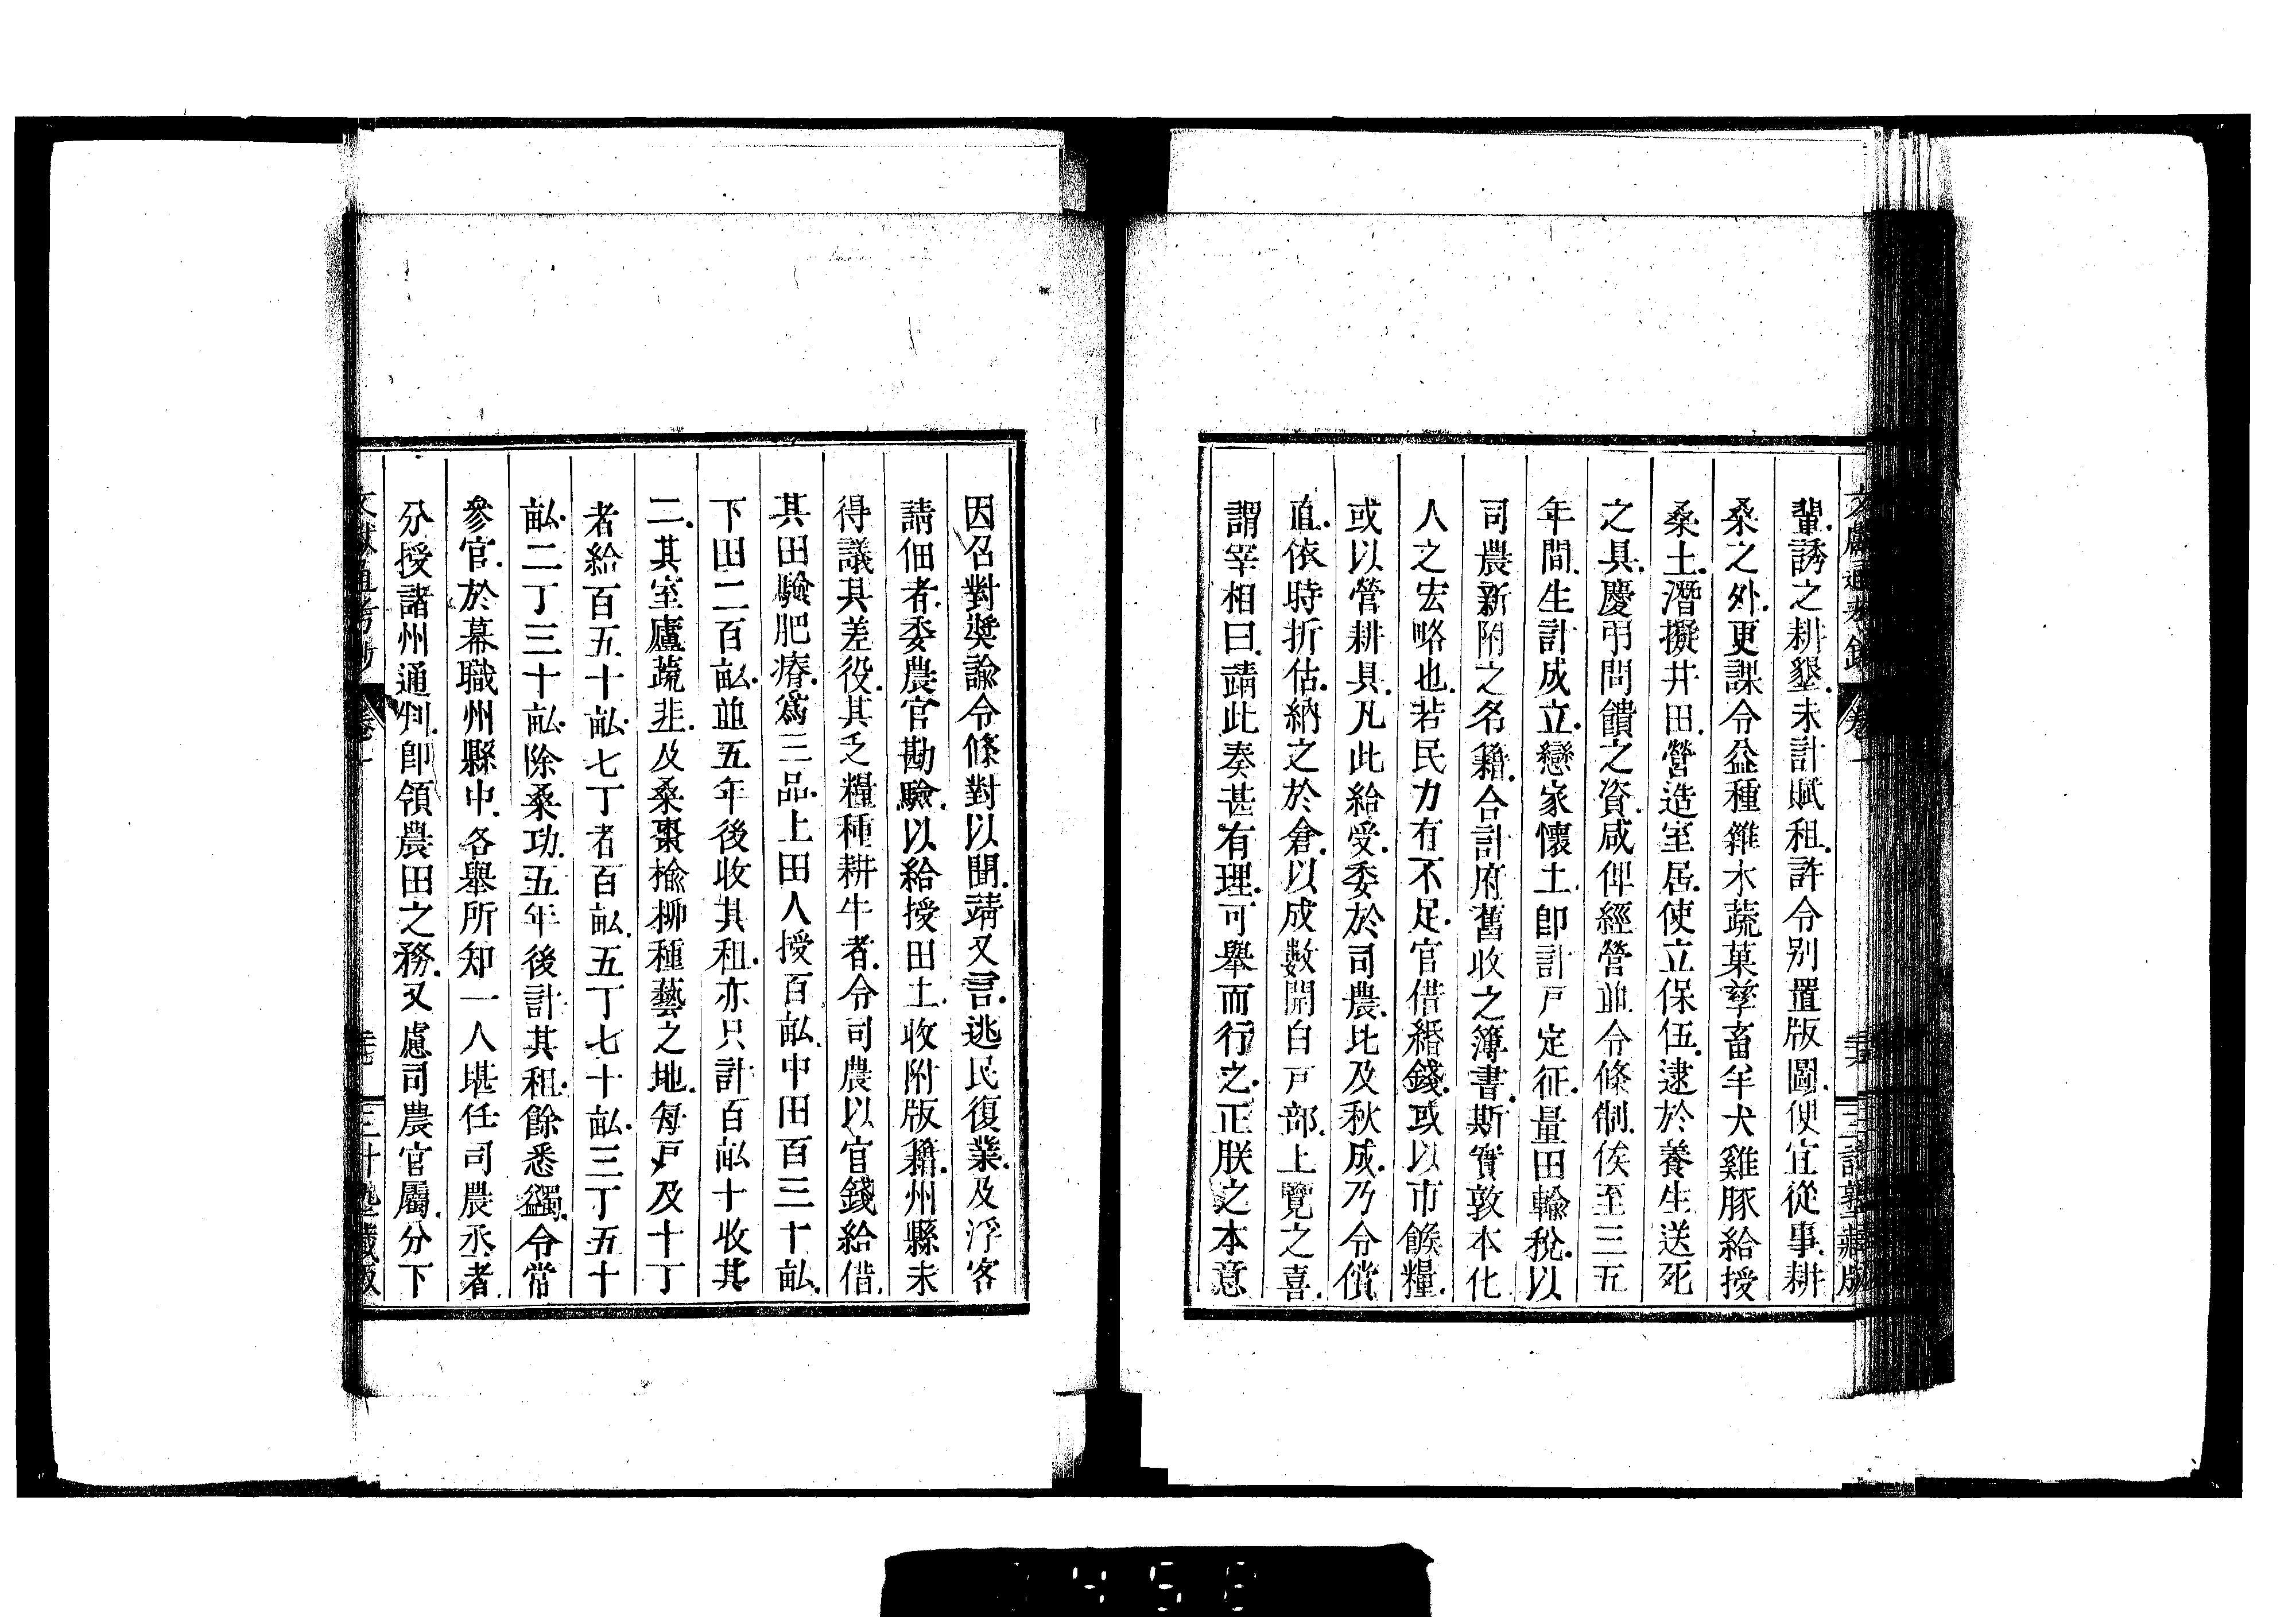 輩誘之耕墾未計賦租許令別置版圖便宜從事耕
桑之外更課令益種雜木蔬菓孳畜羊犬雞豚給授
桑土潛擬井田營造室居使立保伍逮於養生送死
之具慶弔問饋之資咸俾經營並令條制俟至三五
年間生計成立戀家懷土卽計戸定征量田輸稅以
司農新附之名籍合計府舊收之簿書斯實敦本化
人之宏略也若民力有不足官借緡錢或以市餱糧
或以營耕具凡此給受委於司農比及秋成乃令償
直依時折估納之於倉以成數開白戸部上覽之喜
謂宰相曰靖此奏甚有理可舉而行之正朕之本意
因召對奬諭令條對以聞靖又言逃民復業及浮客
請佃者委農官勘驗以給授田土收附版籍州縣未
得議其差役其乏糧種耕牛者令司農以官錢給借
其田驗肥瘠爲三品上田人授百畝中田百三十畝
下田二百畝並五年後收其租亦只計百畝十收其
二其室廬蔬韭及桑棗楡栁種藝之地每戸及十丁
者給百五十畝七丁者百畝五丁七十畝三丁五十
畝二丁三十畝除桑功五年後計其租餘悉蠲令常
參官於幕職州縣中各舉所知一人堪任司農丞者
分授諸州通判卽領農田之務又慮司農官屬分下